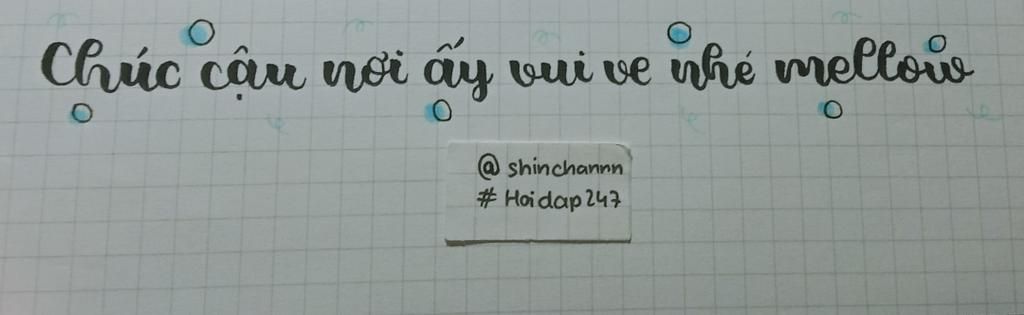 Chúc cậu nơi ấy vui ve nhé mellow
@ shinchannn
# Hoidap247